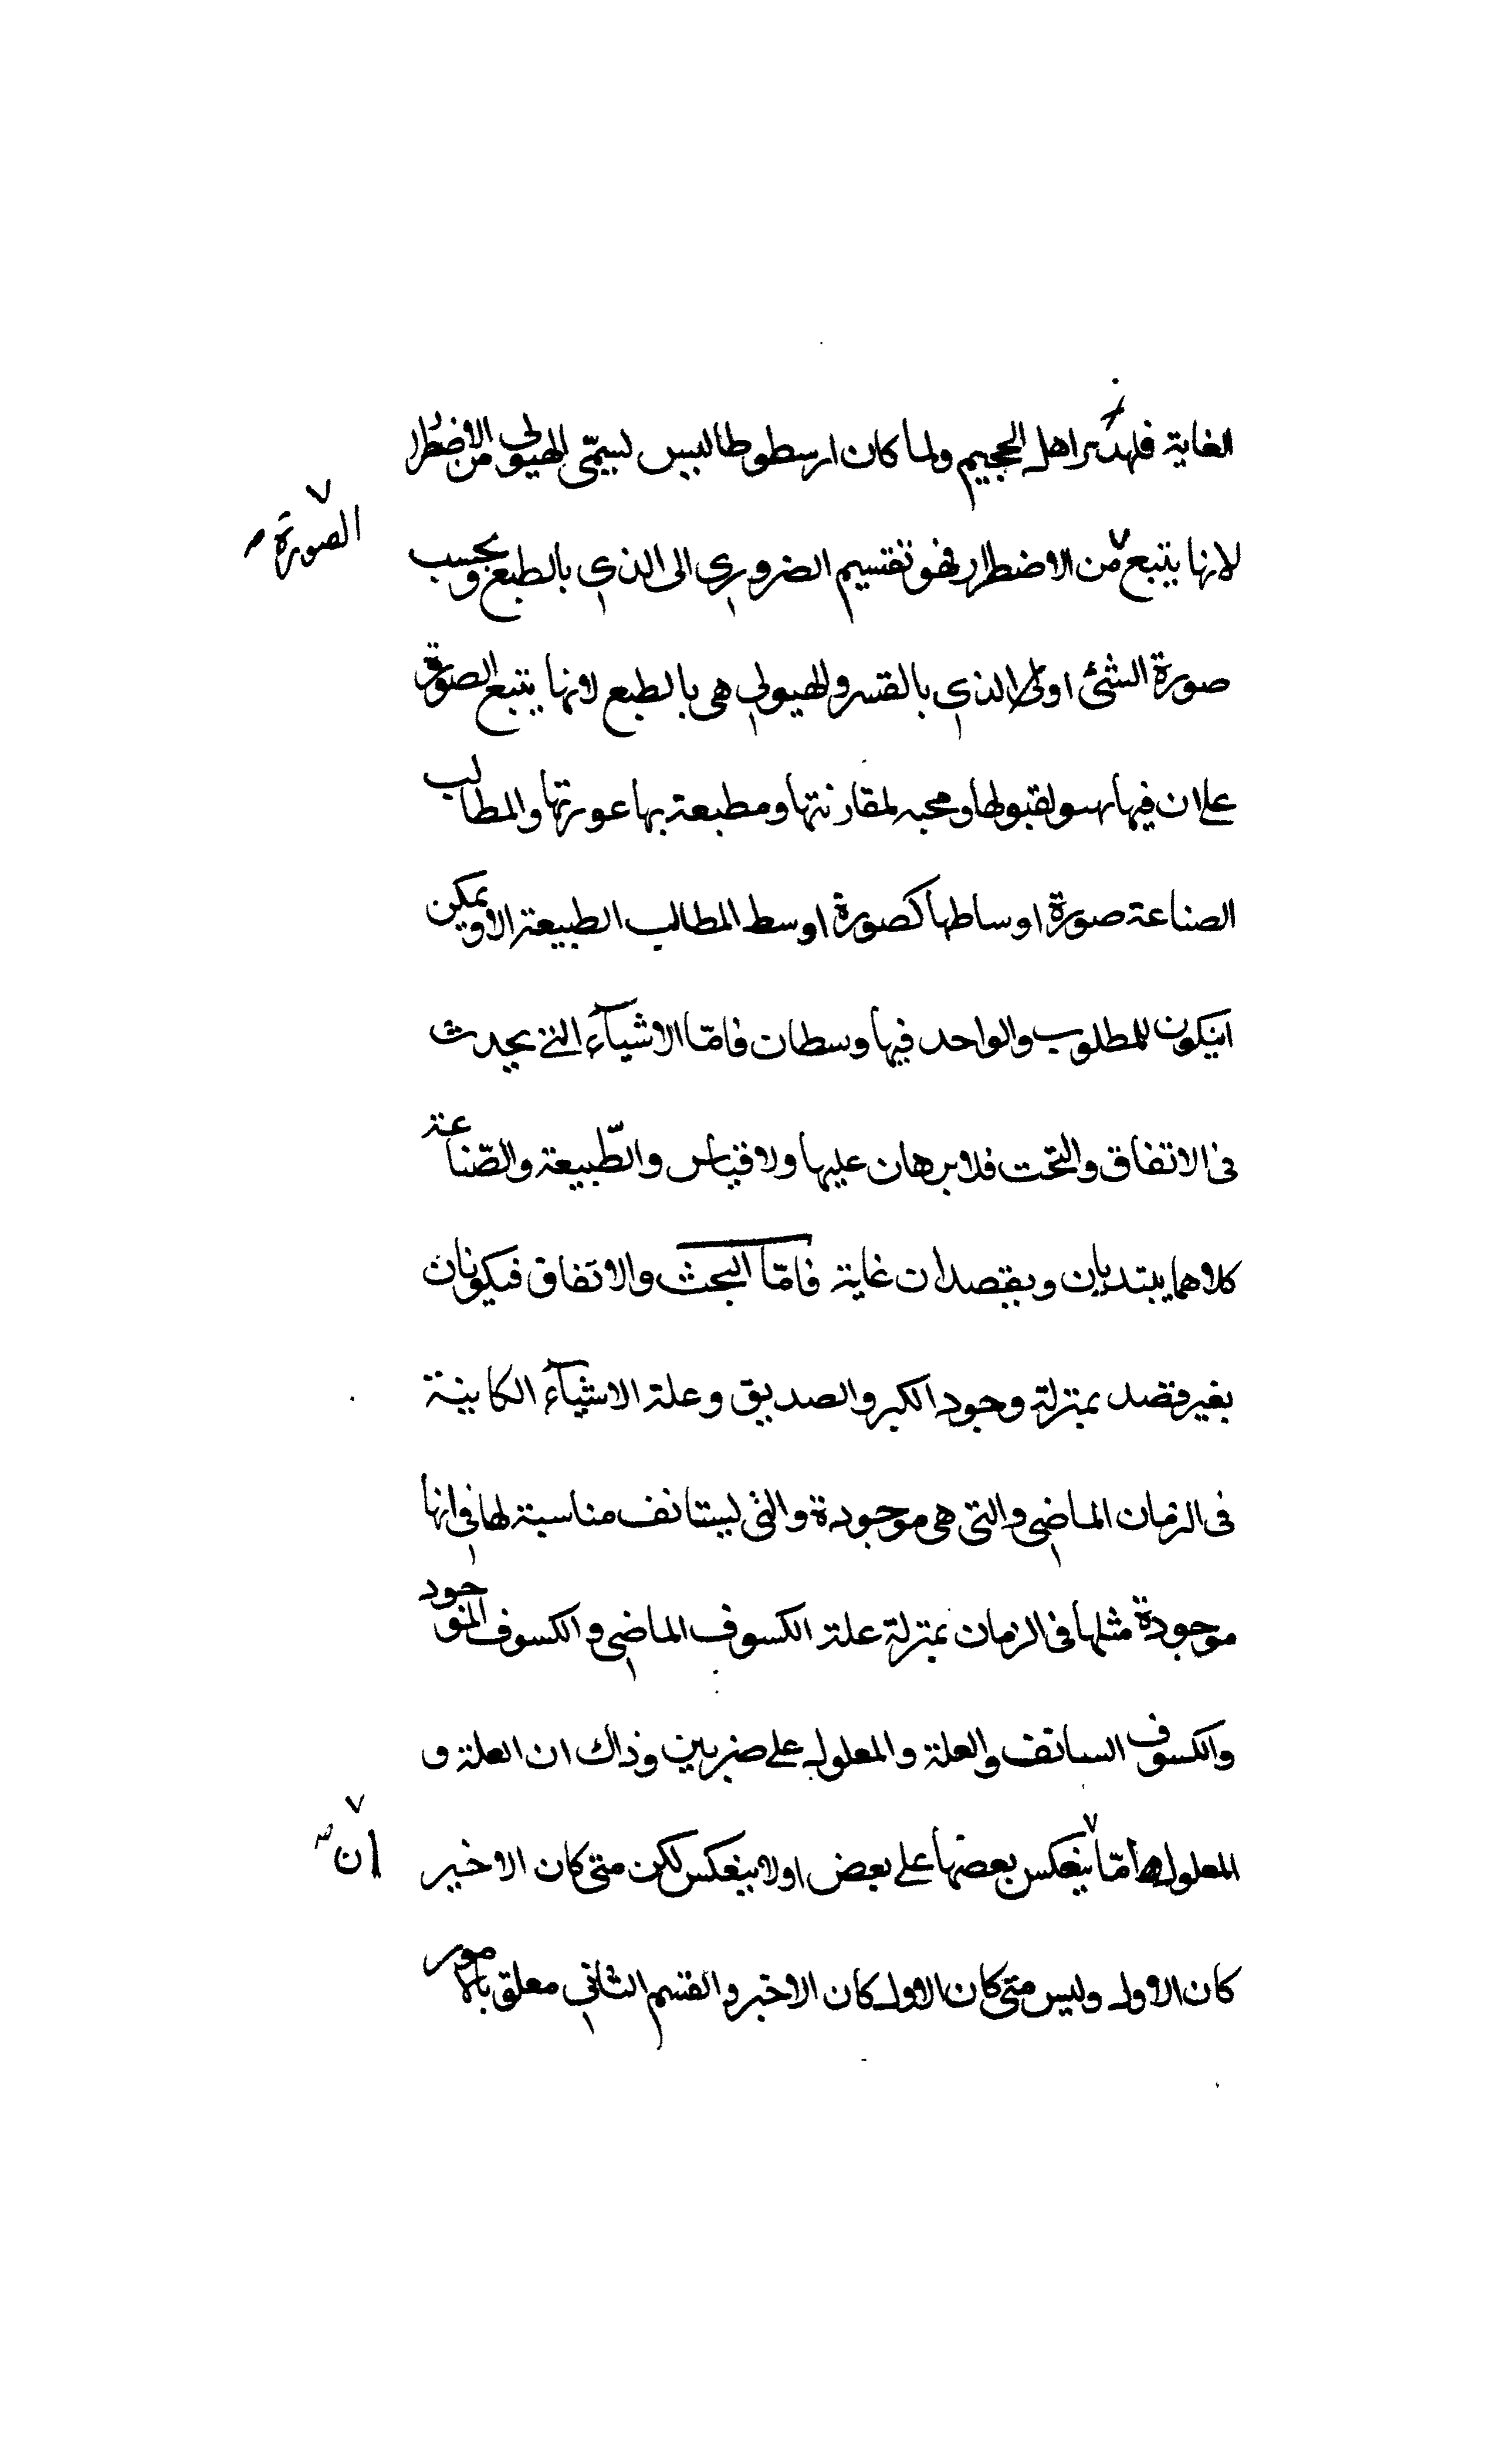 الغاية فلهذا اهل الجحيم ولما كان ارسطوطاليس يسمّى الهيولى من الاضطرار
الصورة
لانها يتبع من الاضطرار فهو تقسيم الضروري الى الذي بالطبع وبحسب
صورة الشئ اولى الذي بالقسر والهيولى هى بالطبع لانها يتبع الصورة
على ان فيها لقبولها ومحبه لمقارنتها ومطبعة بها والمطالب
الصناعة صورة اوساطها كصورة اوسط المطالب الطبيعة الا ويمكن
ان يكون للمطلوب والواحد فيها وسطان فامّا الاشيآء التى يحدث
فى الاتفاق والتحت فلا برهان عليها ولا قياس والطّبيعة والصّناعة
كلاهما يبتديان ويقصدان غاية فامّا البحث والاتفاق فيكونان
بغير قصد بمنزلة وجود الكبر والصديق وعلة الاشيآء الكاينة
فى الزمان الماضى والتى هى موجودة والتى ليستانف مناسبة لها فى انها
موجودة مثلها فى الزمان بمنزلة علة الكسوف الماضى والكسوف الموجود
والكسوف السانف والعلة والمعلول على ضربين وذاك ان العلة و
المعلول امّا ينعكس بعضها على بعض اولا ينعكس لكن متى كان الاخير
ان
كان الاول وليس متى كان الاول كان الاخير والقسم الثانى معلق بالامور